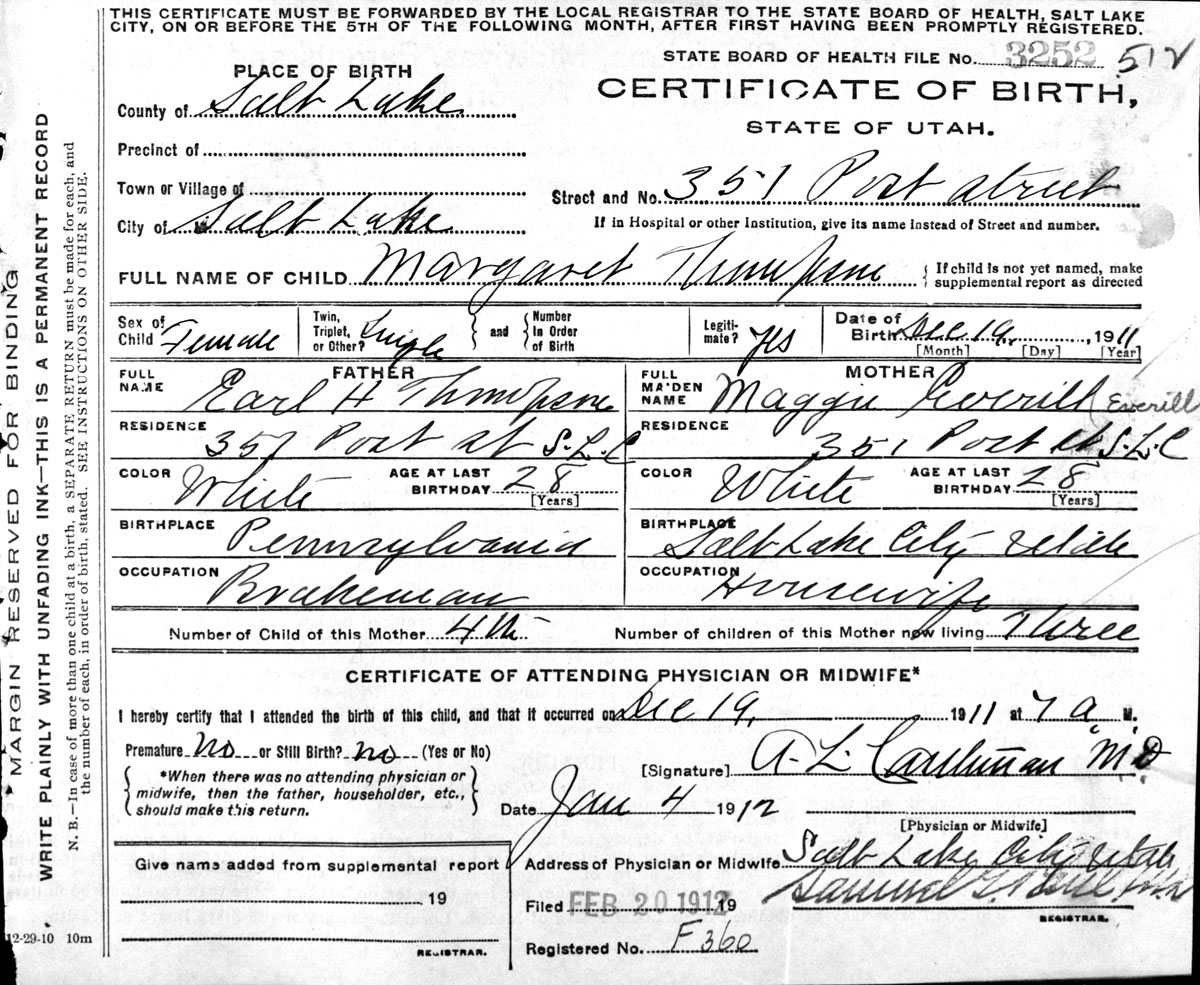 THIS CERTIFICATE MUST BE FORWARDED BY THE LOCAL REGISTRAR TO THE STATE BOARD OF HEALTH, SALT LAKE
CITY, ON OR BEFORE THE 5TH OF THE FOLLOWING MONTH, AFTER FIRST HAVING BEEN PROMPTLY REGISTERED.
STATE BOARD OF HEALTH FILE No. 3252 512
CERTIFICATE OF BIRTH,
STATE OF UTAH.
PLACE OF BIRTH
County of Salt Lake
Precinct of
Town or Village of
City of Salt Lake
Street and No. 351 Post street
If in Hospital or other Institution, give its name instead of Street and number.
FULL NAME OF CHILD Margaret Thompson
{ If child is not yet named, make
supplemental report as directed
Sex of
Child Female
Twin,
Triplet,
or Other? Single
and
Number
In Order
of Birth
Legiti-
mate? Yes
Date of
Birth Dec 19, 1911
[Month] [Day] [Year]
FATHER
FULL
NAME Earl H Thompson
RESIDENCE
357 Post st S.L.C
COLOR White
AGE AT LAST
BIRTHDAY 28
[Years]
BIRTHPLACE
Pennsylvania
OCCUPATION
Brakeman
MOTHER
FULL
MAIDEN
NAME Maggie Everill (Everill
RESIDENCE
351 Post st S.L.C
COLOR White
AGE AT LAST
BIRTHDAY 28
[Years]
BIRTHPLACE
Salt Lake City Utah
OCCUPATION
Housewife
Number of Child of this Mother 4th
Number of children of this Mother now living Three
CERTIFICATE OF ATTENDING PHYSICIAN OR MIDWIFE*
I hereby certify that I attended the birth of this child, and that it occurred on Dec 19, 1911 at 7 a. M.
Premature no or Still Birth? no (Yes or No)
{ *When there was no attending physician or
midwife, then the father, householder, etc.,
should make this return. }
[Signature] A. L. MD
Date Jan 4 1912
[Physician or Midwife]
Address of Physician or Midwife Salt Lake City Utah
Give name added from supplemental report
19
REGISTRAR.
Filed FEB 20 1912 19
Samuel G.
REGISTRAR.
Registered No. F360
12-29-10 10m
MARGIN RESERVED FOR BINDING
WRITE PLAINLY WITH UNFADING INK—THIS IS A PERMANENT RECORD
N. B.—In case of more than one child at a birth, a SEPARATE RETURN must be made for each, and
the number of each, in order of birth, stated. SEE INSTRUCTIONS ON OTHER SIDE.